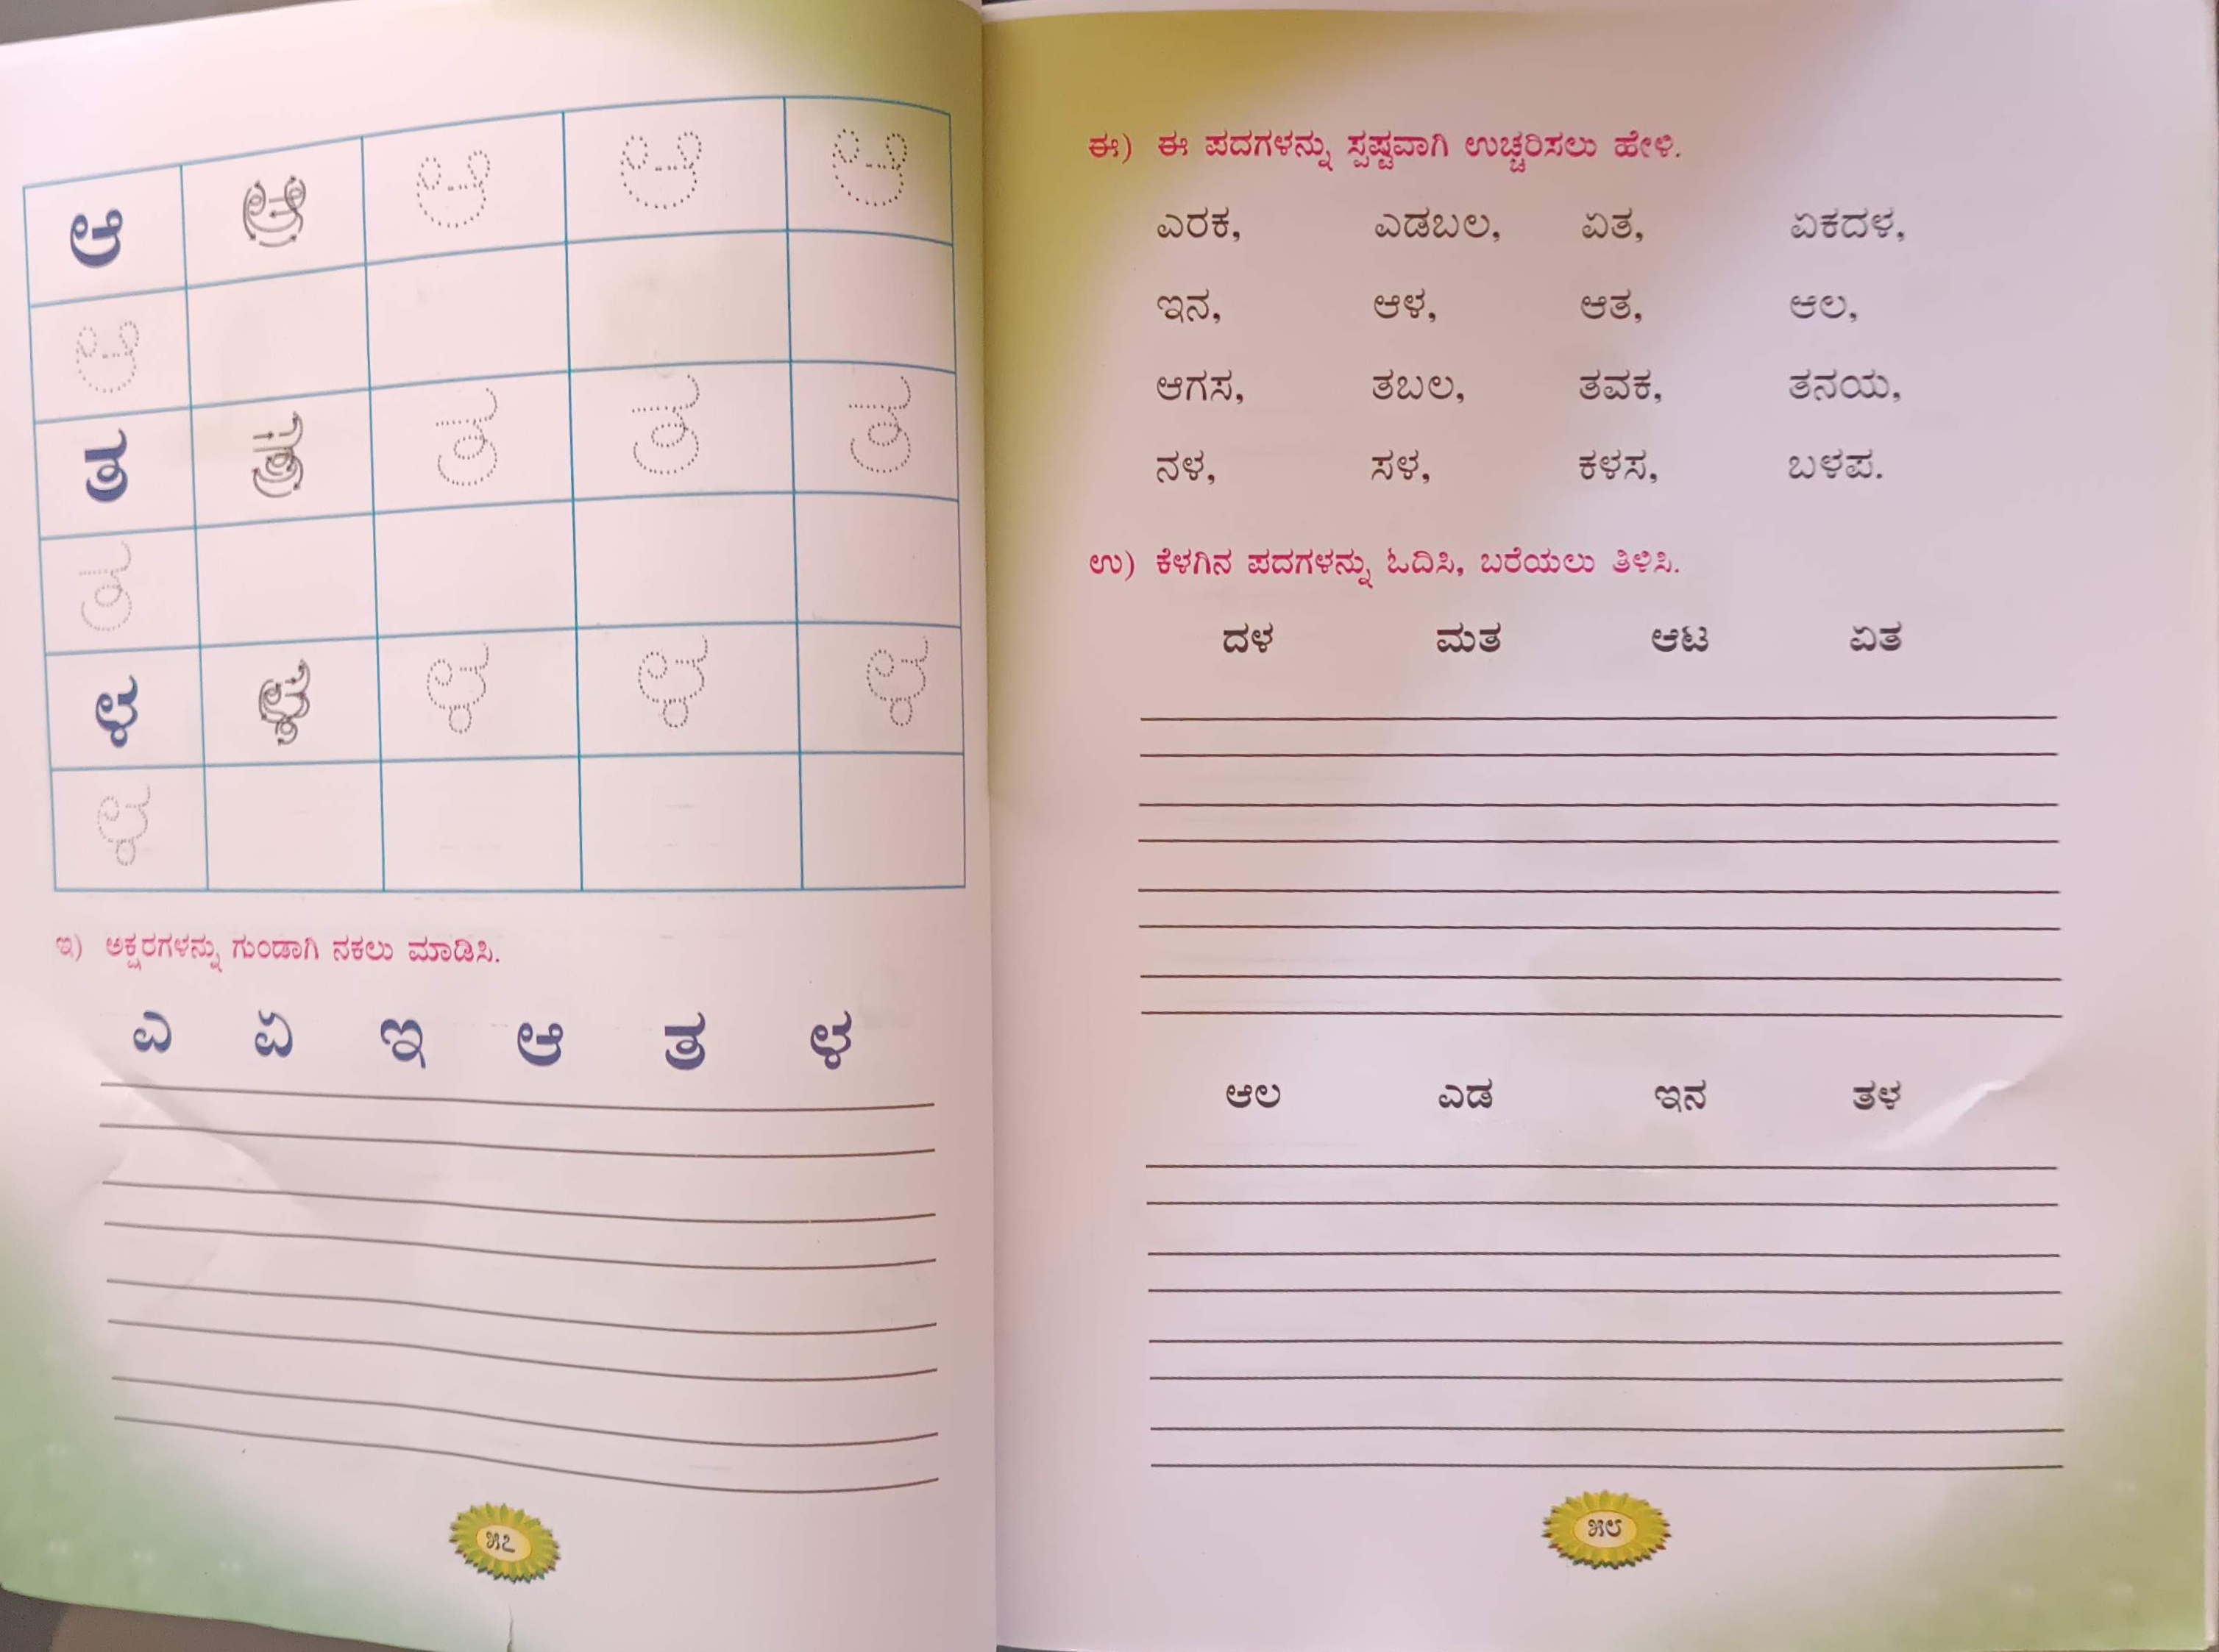 ಆ ಆ ಆ ಆ ಆ
ಆ
ತ ತ ತ ತ ತ
ತ
ಳ ಳ ಳ ಳ ಳ
ಳ
ಇ) ಅಕ್ಷರಗಳನ್ನು ಗುಂಡಾಗಿ ನಕಲು ಮಾಡಿಸಿ.
ಎ ಏ ಇ ಆ ತ ಳ
೫೭
ಈ) ಈ ಪದಗಳನ್ನು ಸ್ಪಷ್ಟವಾಗಿ ಉಚ್ಚರಿಸಲು ಹೇಳಿ.
ಎರಕ, ಎಡಬಲ, ಏತ, ಏಕದಳ,
ಇನ, ಆಳ, ಆತ, ಆಲ,
ಆಗಸ, ತಬಲ, ತವಕ, ತನಯ,
ನಳ, ಸಳ, ಕಳಸ, ಬಳಪ.
ಉ) ಕೆಳಗಿನ ಪದಗಳನ್ನು ಓದಿಸಿ, ಬರೆಯಲು ತಿಳಿಸಿ.
ದಳ ಮತ ಆಟ ಏತ
ಆಲ ಎಡ ಇನ ತಳ
೫೮